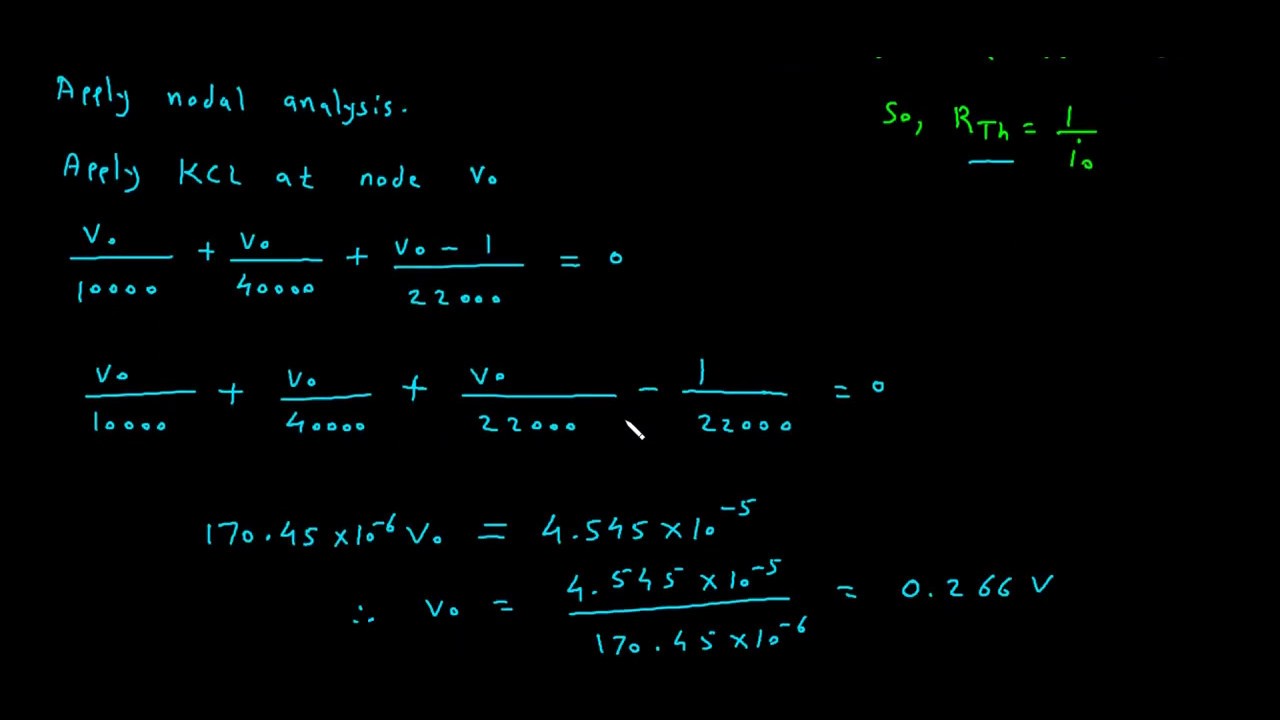 Apply nodal analysis.
So, R_Th = 1/i₀
Apply KCL at node V₀
V₀/10000 + V₀/40000 + (V₀ - 1)/22000 = 0
V₀/10000 + V₀/40000 + V₀/22000 - 1/22000 = 0
170.45 × 10⁻⁶ V₀ = 4.545 × 10⁻⁵
∴ V₀ = (4.545 × 10⁻⁵)/(170.45 × 10⁻⁶) = 0.266 V